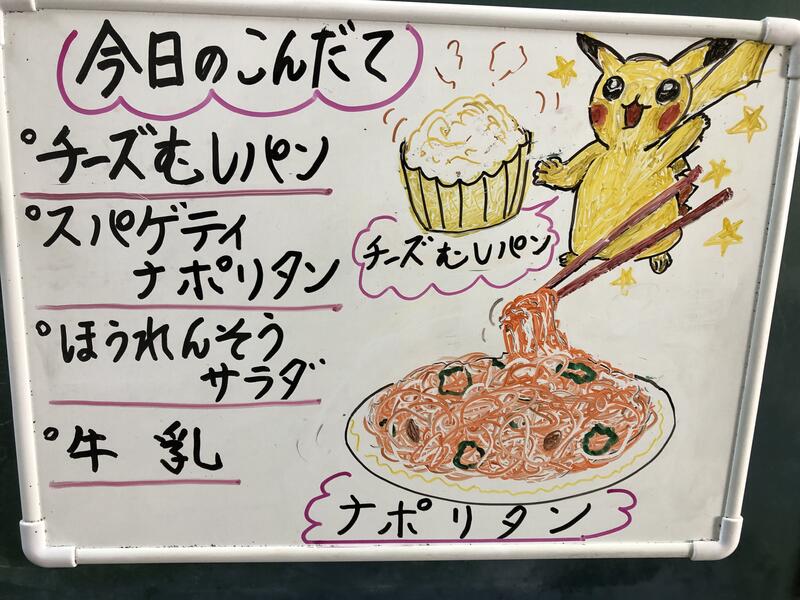 今日のこんだて
°チーズむしパン
°スパゲティ
ナポリタン
°ほうれんそう
サラダ
°牛乳
チーズむしパン
ナポリタン